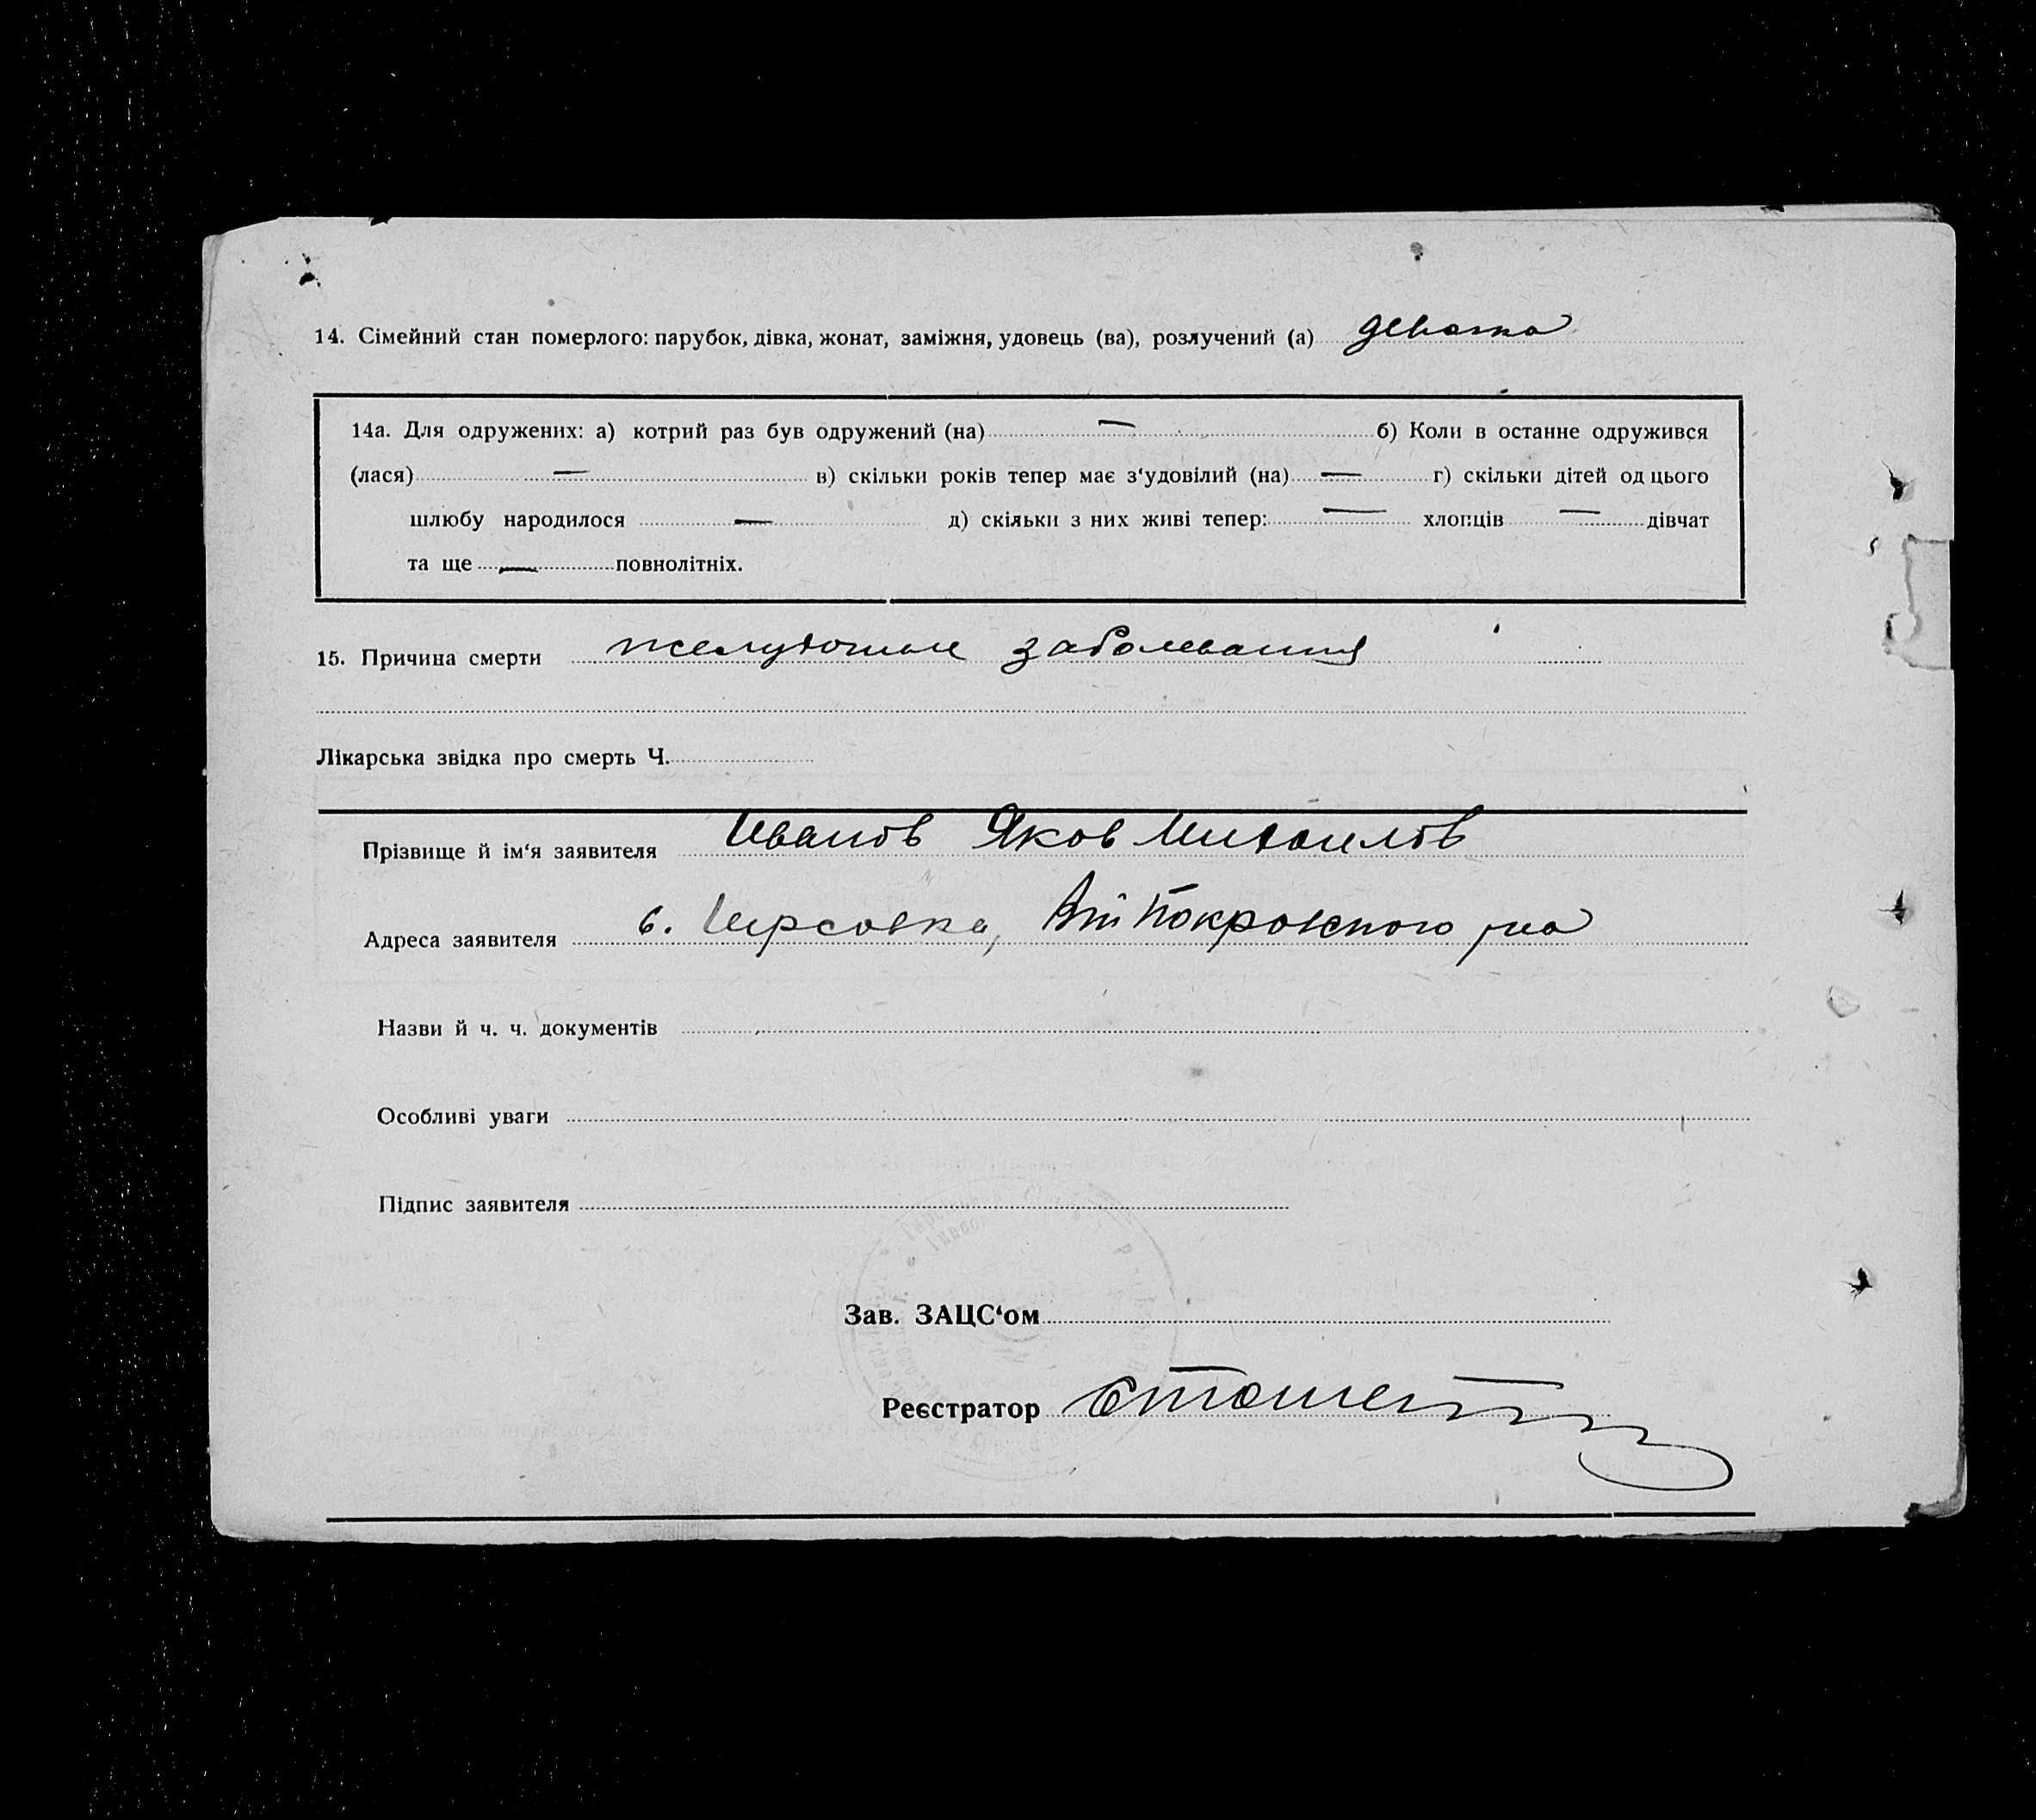 14. Сімейний стан померлого: парубок, дівка, жонат, заміжня, удовець (ва), розлучений (а)
14а. Для одружених: а) котрий раз був одружений (на) — б) Коли в останне одружився
(лася) — в) скільки років тепер має з‘удовілий (на) — г) скільки дітей од цього
шлюбу народилося — д) скільки з них живі тепер: — хлопців — дівчат
та ще — повнолітніх.
15. Причина смерти заболевания
Лікарська звідка про смерть Ч.
Прізвище й ім‘я заявителя Иванов Яков Михаилов
Адреса заявителя Покровского
Назви й ч. ч. документів
Особливі уваги
Підпис заявителя
Зав. ЗАЦС‘ом
Реєстратор